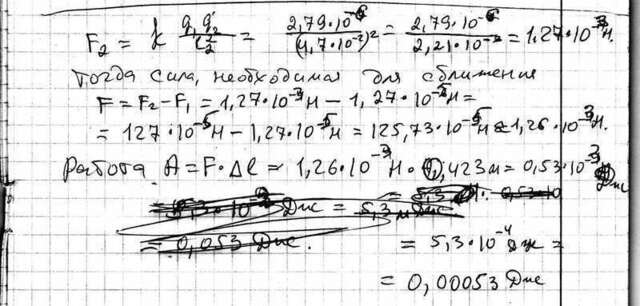 F₂ = k q₁q₂/r₂² = 2,79·10⁻⁶/(4,7·10⁻²)² = 2,79·10⁻⁶/2,21·10⁻³ = 1,27·10⁻³ Н.
Тогда сила, необходимая для сближения
F = F₂ - F₁ = 1,27·10⁻³ Н - 1,27·10⁻⁵ Н =
= 127·10⁻⁵ Н - 1,27·10⁻⁵ Н = 125,73·10⁻⁵ Н ≈ 1,26·10⁻³ Н.
Работа A = F·Δl = 1,26·10⁻³ Н · 0,423 м = 0,53·10⁻³ Дж
= 5,3·10⁻⁴ Дж =
= 0,053 Дж.
= 0,00053 Дж